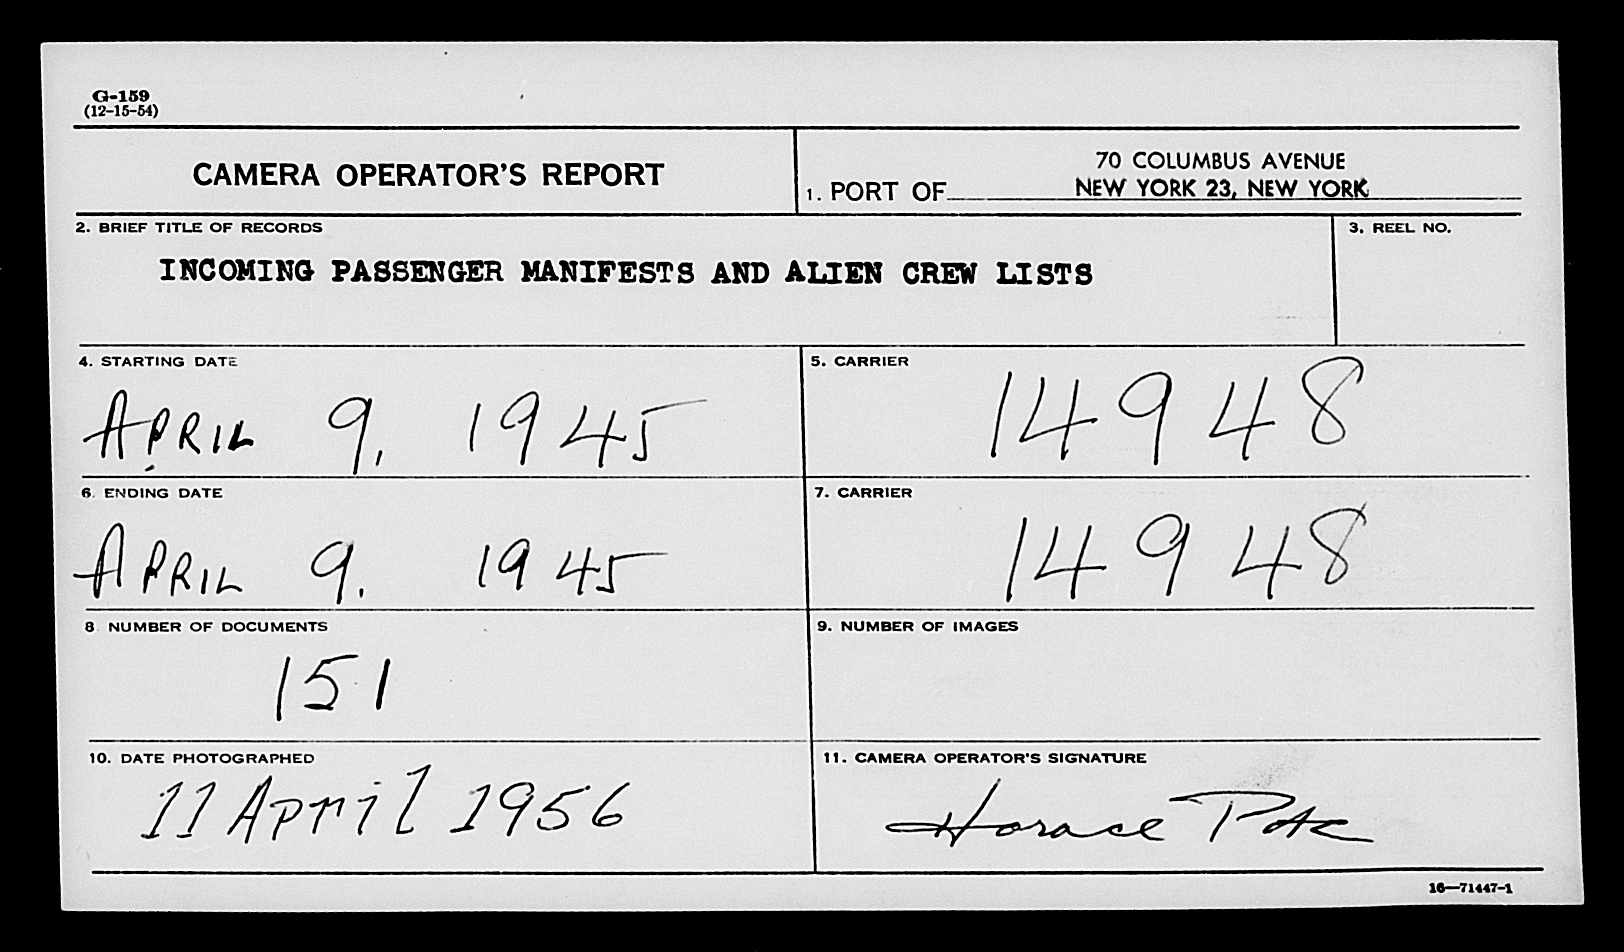 G-159
(12-15-54)
CAMERA OPERATOR'S REPORT
1. PORT OF
70 COLUMBUS AVENUE
NEW YORK 23, NEW YORK
2. BRIEF TITLE OF RECORDS
INCOMING PASSENGER MANIFESTS AND ALIEN CREW LISTS
3. REEL NO.
4. STARTING DATE
APRIL 9, 1945
5. CARRIER
14948
6. ENDING DATE
APRIL 9. 1945
7. CARRIER
14948
8 NUMBER OF DOCUMENTS
151
9. NUMBER OF IMAGES
10. DATE PHOTOGRAPHED
11 April 1956
11. CAMERA OPERATOR'S SIGNATURE
Horace
16—71447-1